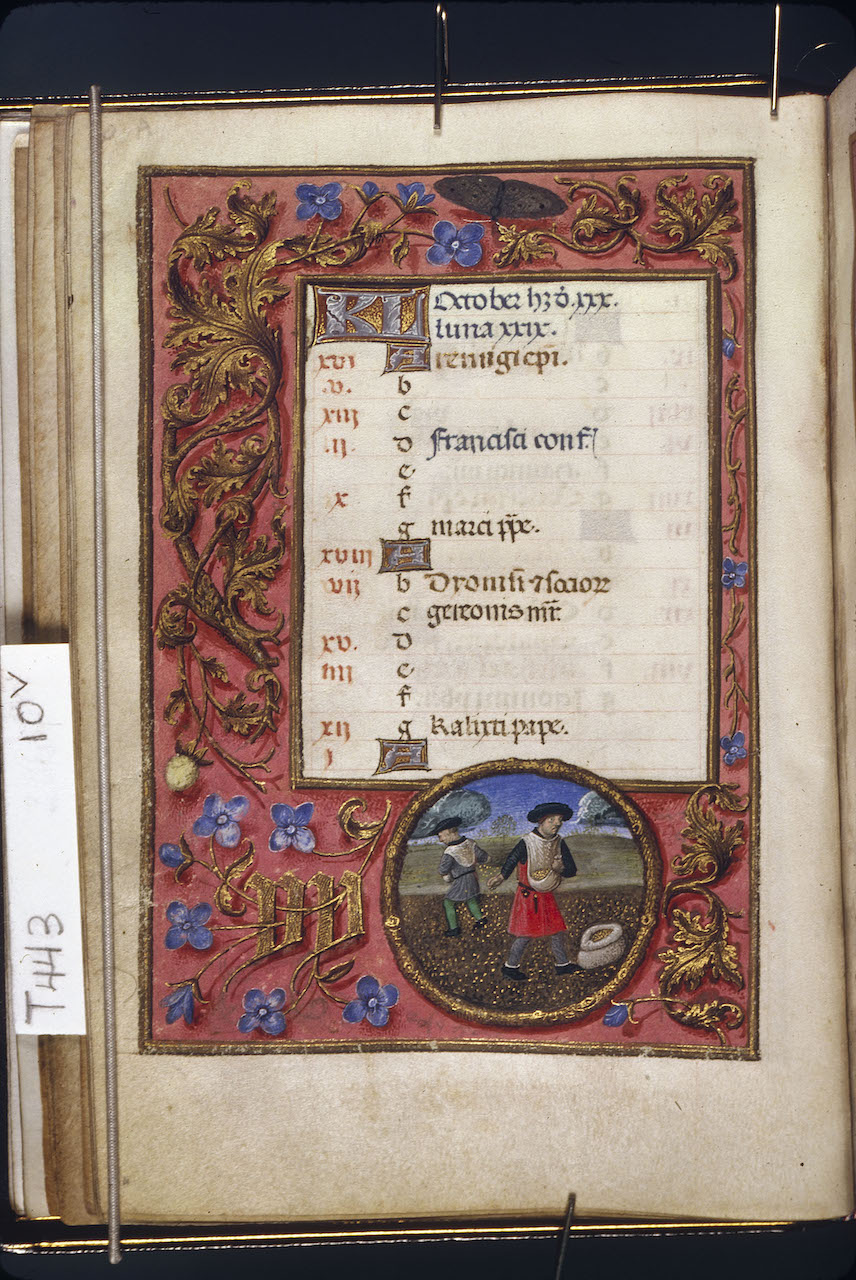 KL October hȝ d̄ xxx.
luna xxix.
xvi A remigi ep̄i.
.v. b
xiij c
.ij. d Francisci conf.
e
x f
g marci p̄p̄e.
xviij A
vij b Dyonisii ⁊ socioꝝ
c gereonis m̄r̄.
xv. d
iiij e
f
xij g Kalixti pape.
j A
10v
T443